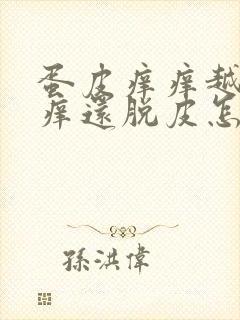 蛋皮痒痒越
痒還脱皮怎
孫洪偉